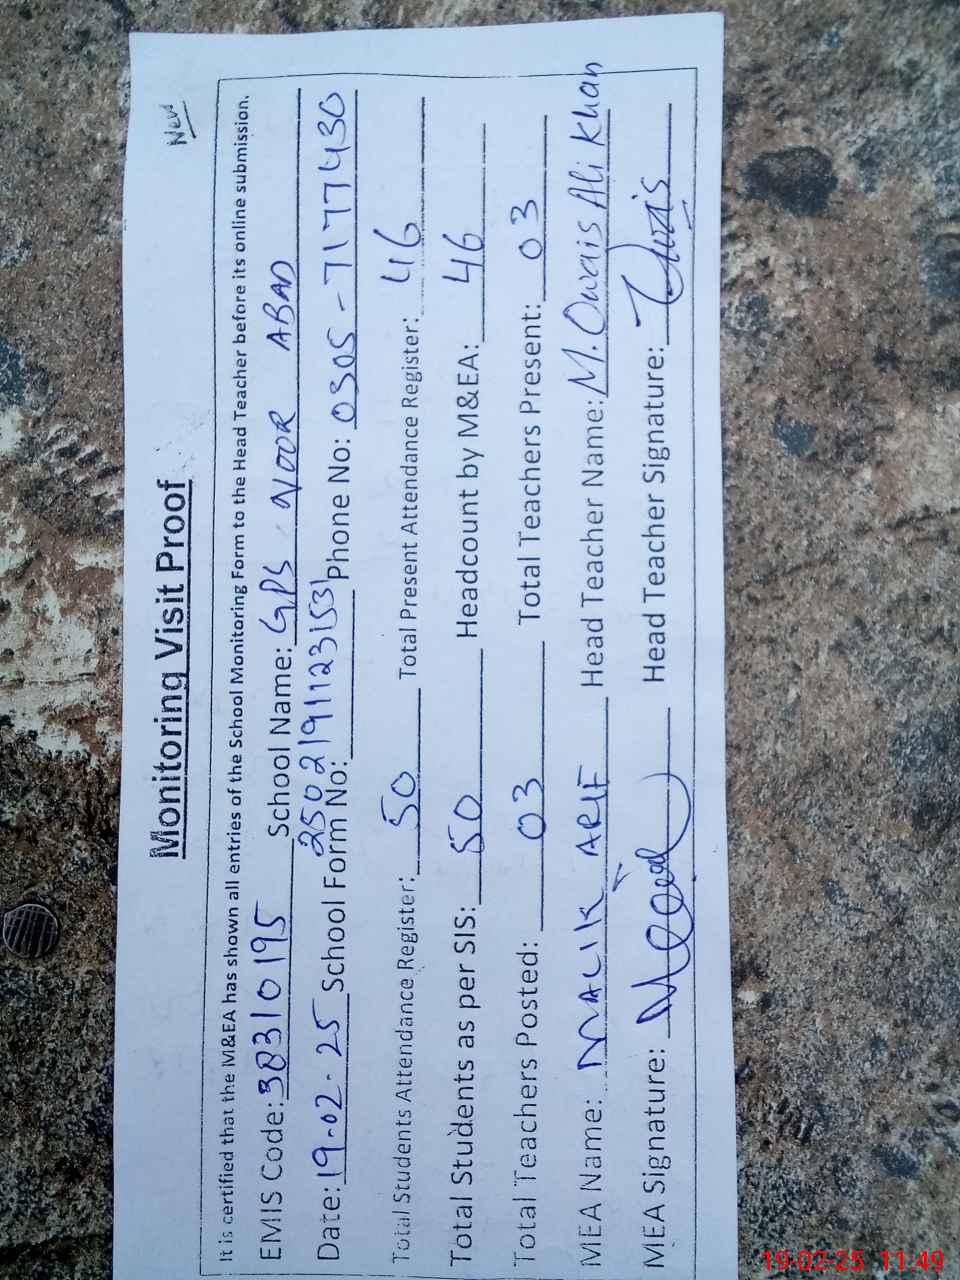 New
Monitoring Visit Proof
It is certified that the M&EA has shown all entries of the School Monitoring Form to the Head Teacher before its online submission.
EMIS Code: 38310195 School Name: GPS NOOR ABAD
Date: 19.02.25 School Form No: 2502191123153 Phone No: 0305-7177430
Total Students Attendance Register: 50 Total Present Attendance Register: 46
Total Students as per SIS: 50 Headcount by M&EA: 46
Total Teachers Posted: 03 Total Teachers Present: 03
MEA Name: MALIK ARIF Head Teacher Name: M. Owais Ali Khan
MEA Signature: Head Teacher Signature: Owais
19-02-25 11:49